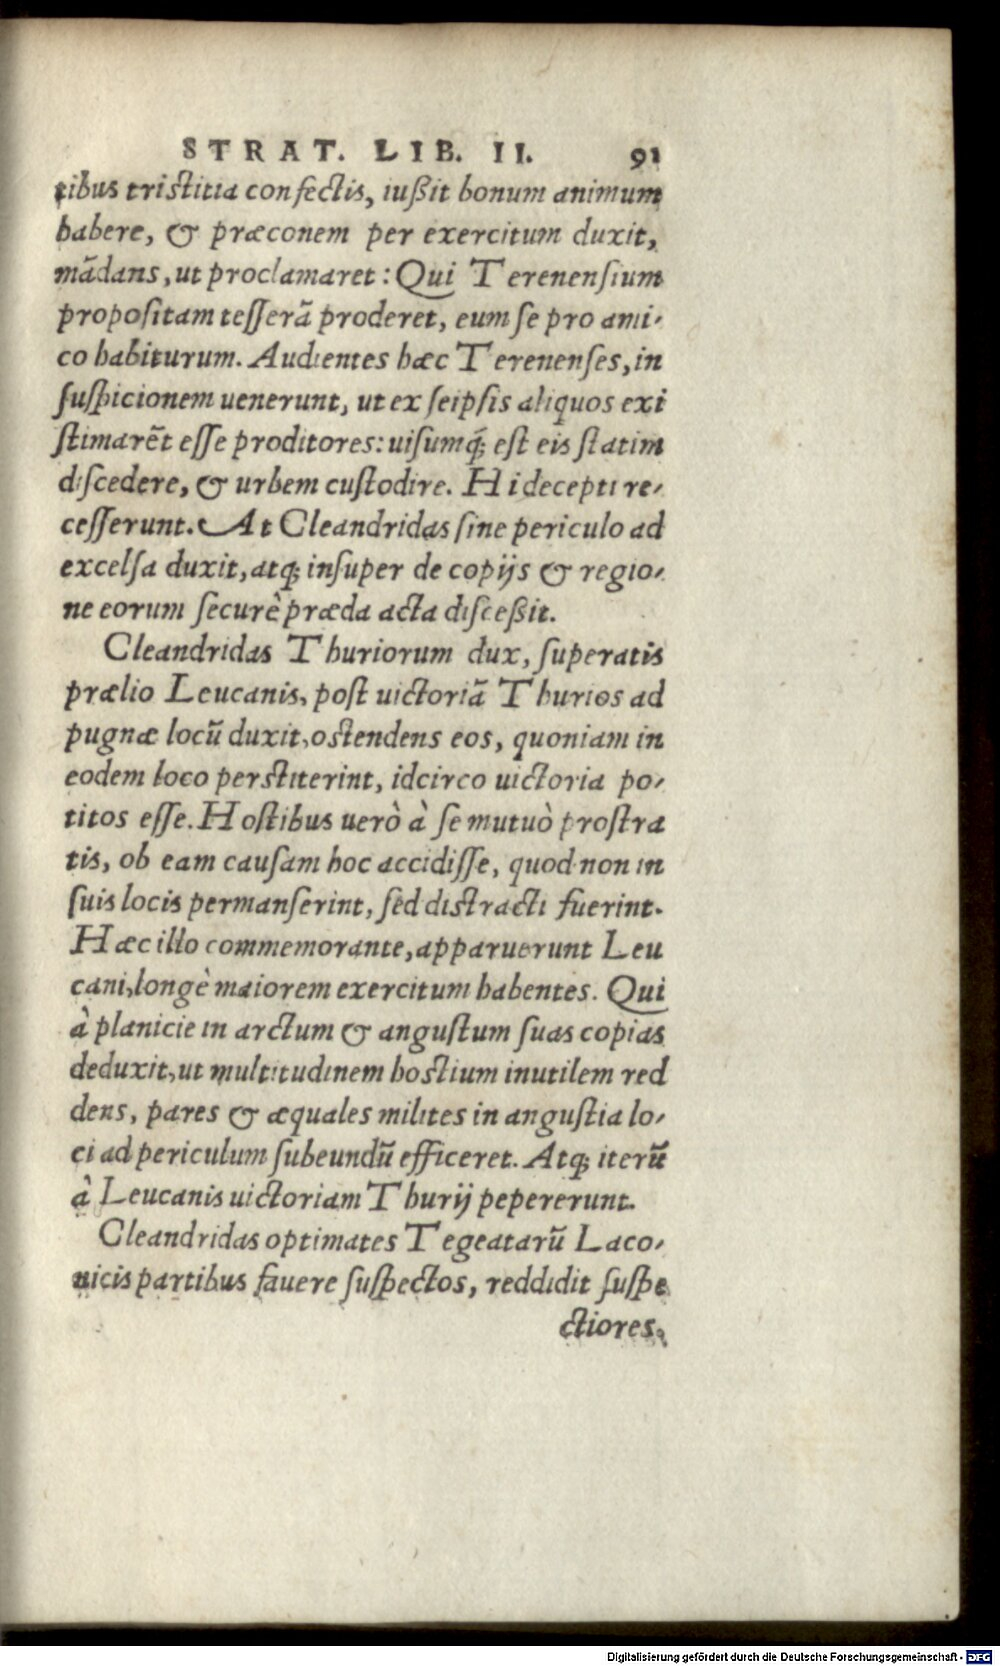 STRAT. LIB. II. 91
tibus tristitia confectis, iußit bonum animum
habere, & præconem per exercitum duxit,
mādans, ut proclamaret: Qui Terenensium
propositam tesserā proderet, eum se pro ami-
co habiturum. Audientes hæc Terenenses, in
suspicionem uenerunt, ut ex seipsis aliquos exi
stimarēt esse proditores: uisumq́; est eis statim
discedere, & urbem custodire. Hi decepti re-
cesserunt. At Cleandridas sine periculo ad
excelsa duxit, atq; insuper de copijs & regio-
ne eorum securè præda acta disceßit.
Cleandridas Thuriorum dux, superatis
prælio Leucanis, post uictoriā Thurios ad
pugnæ locū duxit, ostendens eos, quoniam in
eodem loco perstiterint, idcirco uictoria po-
titos esse. Hostibus uerò à se mutuò prostra
tis, ob eam causam hoc accidisse, quod non in
suis locis permanserint, sed distracti fuerint.
Hæc illo commemorante, apparuerunt Leu
cani, longè maiorem exercitum habentes. Qui
à planicie in arctum & angustum suas copias
deduxit, ut multitudinem hostium inutilem red
dens, pares & æquales milites in angustia lo-
ci ad periculum subeundū efficeret. Atq; iterū
à Leucanis uictoriam Thurij pepererunt.
Cleandridas optimates Tegeatarū Laco-
nicis partibus fauere suspectos, reddidit suspe
ctiores.
Digitalisierung gefördert durch die Deutsche Forschungsgemeinschaft - DFG